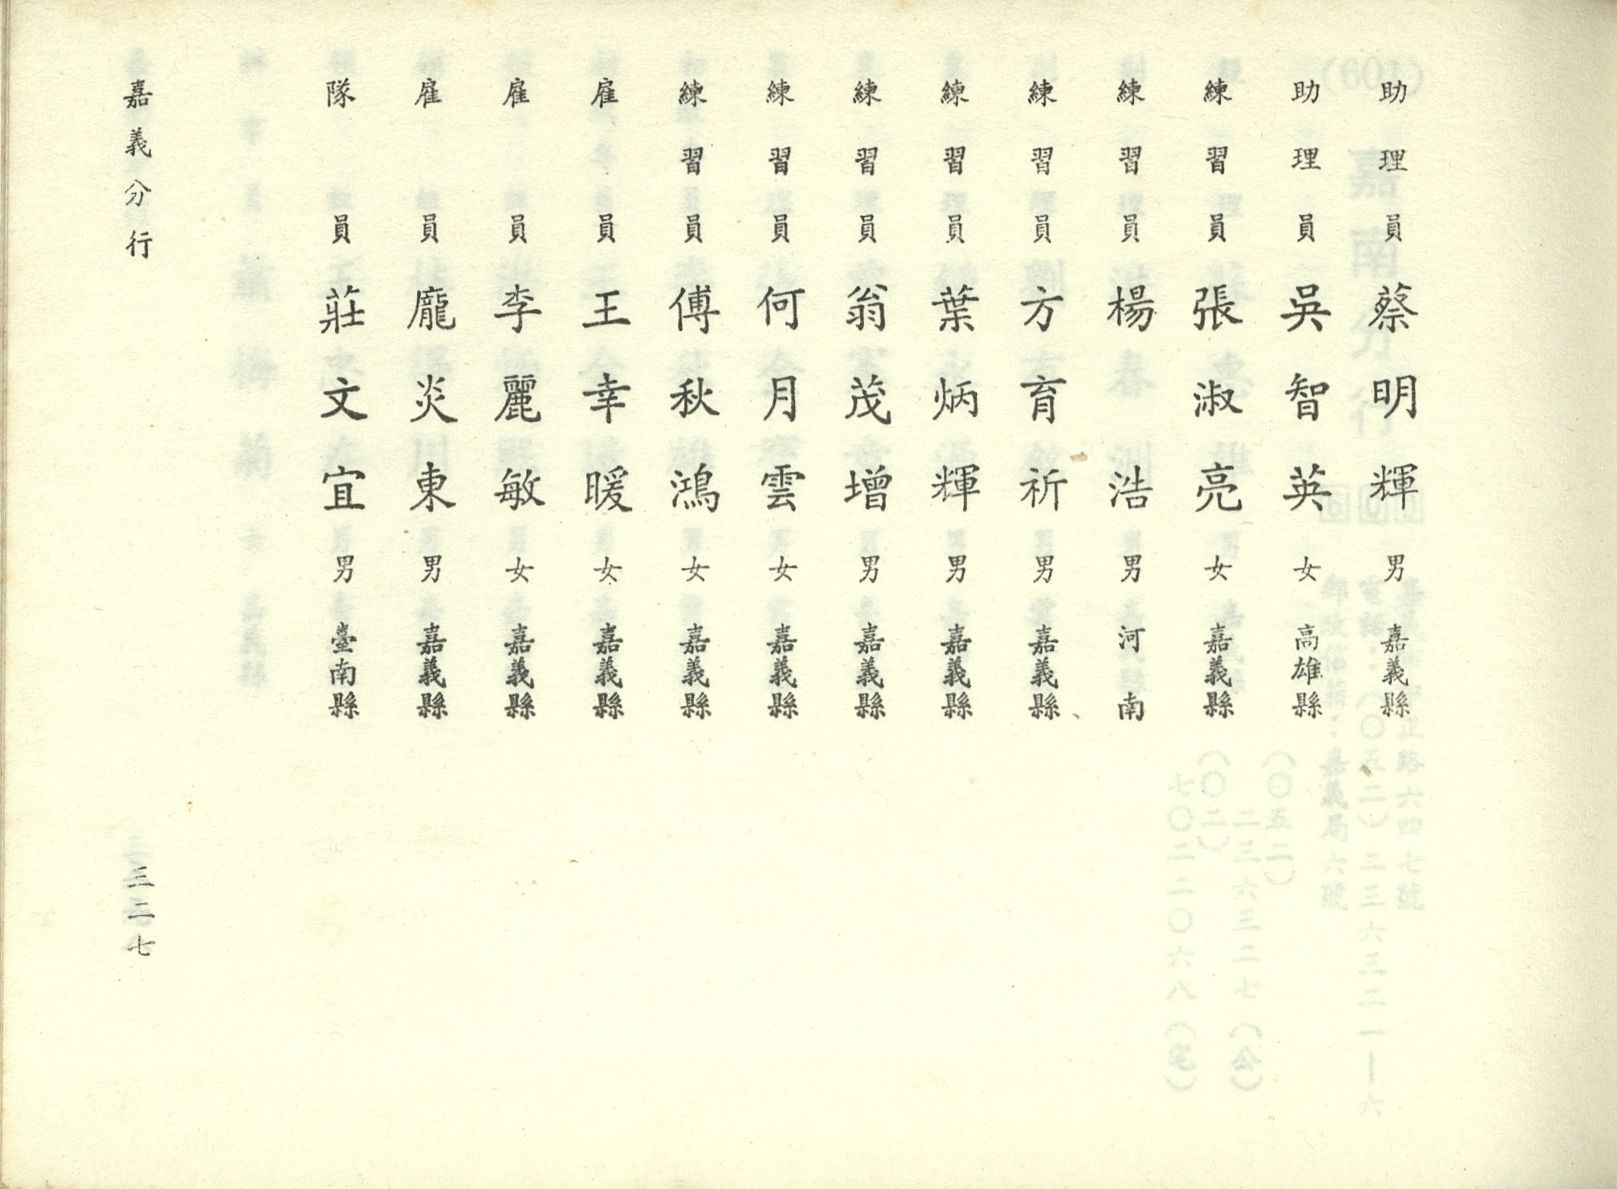 助理員 蔡明輝 男 嘉義縣
助理員 吳智英 女 高雄縣
練習員 張淑亮 女 嘉義縣
練習員 楊浩 男 河南
練習員 方育祈 男 嘉義縣
練習員 葉炳輝 男 嘉義縣
練習員 翁茂增 男 嘉義縣
練習員 何月雲 女 嘉義縣
練習員 傅秋鴻 女 嘉義縣
雇員 王幸暖 女 嘉義縣
雇員 李麗敏 女 嘉義縣
雇員 龐炎東 男 嘉義縣
隊員 莊文宜 男 臺南縣
嘉義分行
三二七